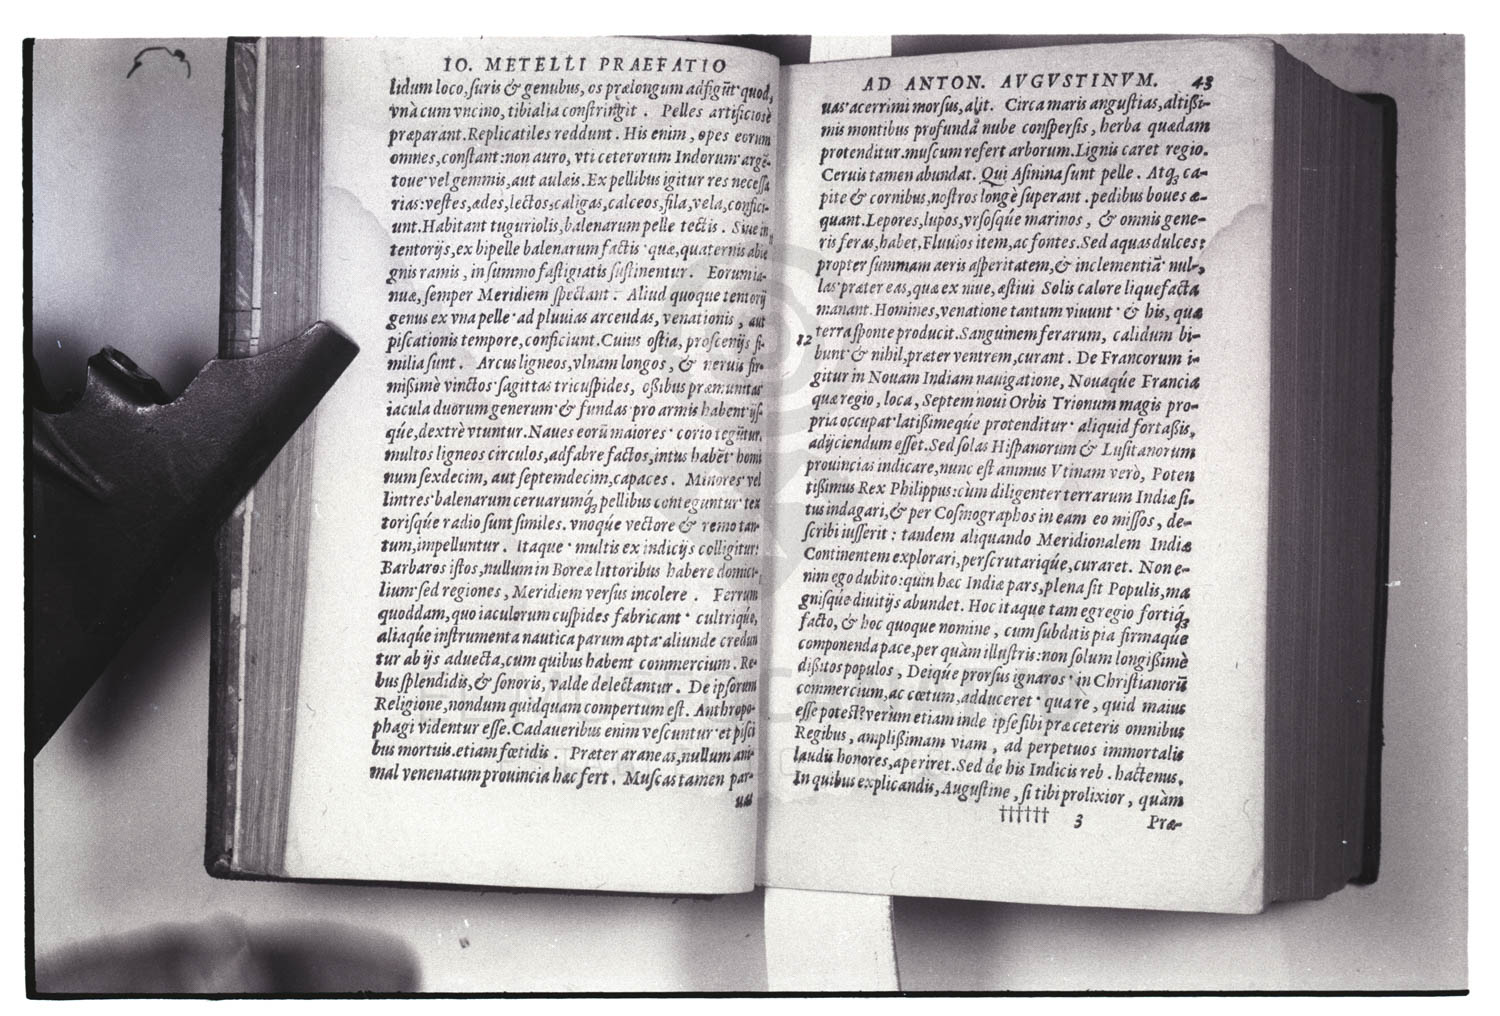 IO. METELLI PRAEFATIO
lidum loco, suris & genubus, os prælongum adfigūt· quod,
vnà cum vncino, tibialia constringit. Pelles artificiosè
præparant. Replicatiles reddunt. His enim, opes eorum
omnes, constant: non auro, vti ceterorum Indorum· argē-
toue· vel gemmis, aut aulæis. Ex pellibus igitur res necessa
rias: vestes, ædes, lectos, caligas, calceos, fila, vela, confici-
unt. Habitant tuguriolis, balenarum pelle tectis. Siue in
tentorijs, ex bipelle balenarum factis· quæ, quaternis abie
gnis ramis, in summo fastigiatis sustinentur. Eorum ia-
nuæ, semper Meridiem spectant. Aliud quoque tentorij
genus ex vna pelle· ad pluuias arcendas, venationis, aut
piscationis tempore, conficiunt. Cuius ostia, proscenijs si-
milia sunt. Arcus ligneos, vlnam longos, & neruis fir-
mißimè vinctos· sagittas tricuspides, oßibus præmunitas
iacula duorum generum· & fundas pro armis habent· ijs-
qúe, dextrè vtuntur. Naues eorū maiores· corio tegūtur.
multos ligneos circulos, adfabre factos, intus habēt· homi
num sexdecim, aut septemdecim, capaces. Minores vel
lintres· balenarum ceruarumq́; pellibus conteguntur· tex
torisqúe radio sunt similes. vnoqúe vectore & remo tan-
tum, impelluntur. Itaque· multis ex indicijs colligitur:
Barbaros istos, nullum in Boreæ littoribus habere domici-
lium: sed regiones, Meridiem versus incolere. Ferrum
quoddam, quo iaculorum cuspides fabricant· cultriqúe,
aliaqúe instrumenta nautica parum apta· aliunde credun
tur ab ijs aduecta, cum quibus habent commercium. Re-
bus splendidis, & sonoris, valde delectantur. De ipsorum
Religione, nondum quidquam compertum est. Anthropo-
phagi videntur esse. Cadaueribus enim vescuntur· et pisci
bus mortuis. etiam fœtidis. Præter araneas, nullum ani-
mal venenatum prouincia hæc fert. Muscas tamen par-
uas
AD ANTON. AVGVSTINVM. 43
uas· acerrimi morsus, alit. Circa maris angustias, altißi-
mis montibus profunda nube conspersis, herba quædam
protenditur. muscum refert arborum. Lignis caret regio.
Ceruis tamen abundat. Qui Asinina sunt pelle. Atq; ca-
pite & cornibus, nostros longè superant. pedibus boues æ-
quant. Lepores, lupos, vrsosqúe marinos, & omnis gene-
ris feras, habet, Fluuios item, ac fontes. Sed aquas dulces:
propter summam aeris asperitatem, & inclementiā nul-
las· præter eas, quæ ex niue, æstiui Solis calore liquefacta
manant. Homines, venatione tantum viuunt· & his, quæ
terra sponte producit. Sanguinem ferarum, calidum bi-
82
bunt· & nihil, præter ventrem, curant. De Francorum i-
gitur in Nouam Indiam nauigatione, Nouaqúe Francia
quæ regio, loca, Septem noui Orbis Trionum magis pro-
pria occupat· latißimeqúe protenditur· aliquid fortaßis,
adijciendum esset. Sed solas Hispanorum & Lusitanorum
prouincias indicare, nunc est animus Vtinam verò, Poten
tißimus Rex Philippus: cùm diligenter terrarum Indiæ si-
tus indagari, & per Cosmographos in eam eo missos, de-
scribi iusserit: tandem aliquando Meridionalem Indiæ
Continentem explorari, perscrutariqúe, curaret. Non e-
nim ego dubito: quin hæc Indiæ pars, plena sit Populis, ma
gnisqúe diuitijs abundet. Hoc itaque tam egregio fortiq́;
facto, & hoc quoque nomine, cum subditis pia firmaqúe
componenda pace, per quàm illustris: non solum longißimè
dißitos populos, Deiqúe prorsus ignaros· in Christianorū
commercium, ac cœtum, adduceret· quare, quid maius
esse potest? verùm etiam inde ipse sibi præ ceteris omnibus
Regibus, amplißimam viam, ad perpetuos immortalis
laudis honores, aperiret. Sed de his Indicis reb. hactenus.
In quibus explicandis, Augustine, si tibi prolixior, quàm
†††††† 3 Præ-